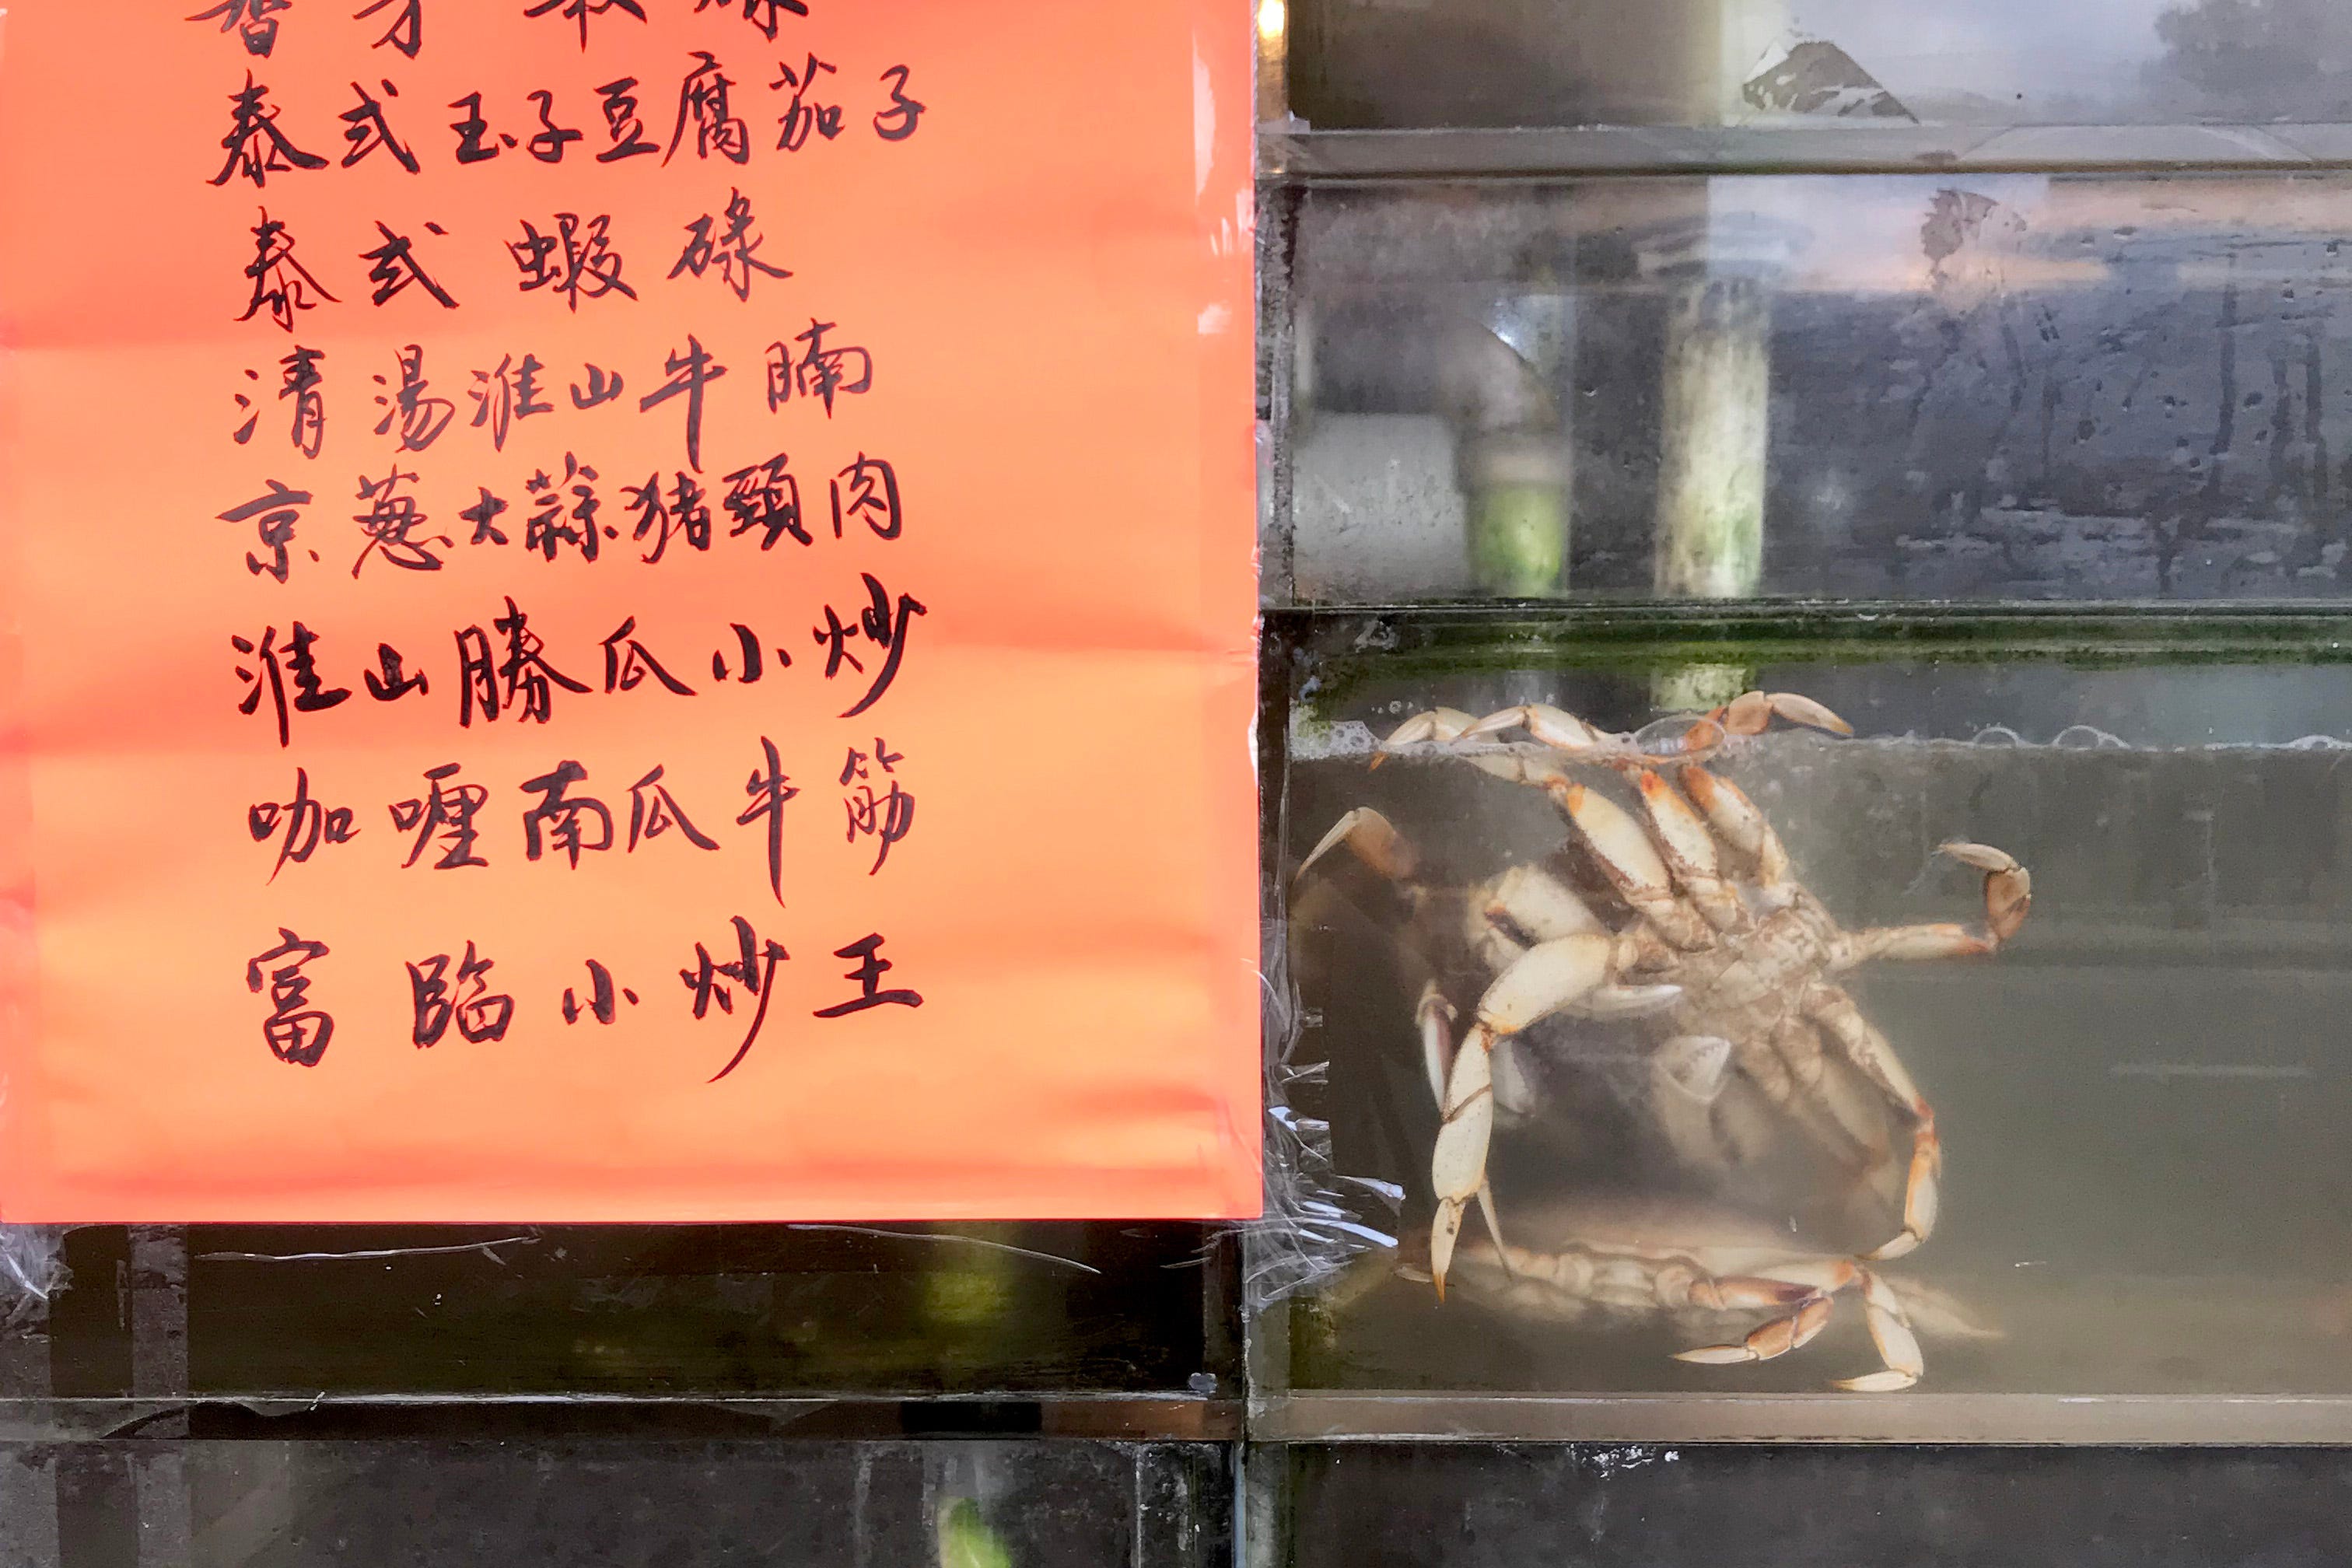 泰式玉子豆腐茄子
泰式蝦碌
清湯淮山牛腩
京蔥大蒜猪頸肉
淮山勝瓜小炒
咖喱南瓜牛筋
富臨小炒王